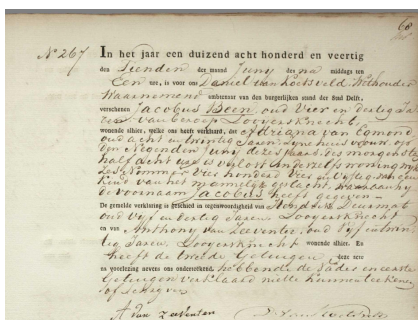 68
N° 267
In het jaar een duizend acht honderd en veertig
den Tienden der maand Juny des na middags ten
Een ure, is voor ons Daniel van Koetsveld, Wethouder
Waarnemend ambtenaar van den burgerlijken stand der Stad Delft,
verschenen Jacobus Been, oud Vier en dertig Ja-
ren van beroep Looyersknecht,
wonende alhier, welke ons heeft verklaard, dat Adriana van Egmond
oud acht en twintig Jaren, zyne huisvrouw, op
den Negenden Juny dezes Jaars, des morgens te
half acht ure is verlost
Nommer vier honderd vier en vyftig, van een
kind van het mannelijk geslacht, waaraan hy
de voornaam Jacobus heeft gegeven
De gemelde verklaring is geschied in tegenwoordigheid van
oud vyf en dertig Jaren, Looyersknecht
en van Anthony van Zeeventer, oud vyf en twin-
tig Jaren, Looyersknecht wonende alhier. En
heeft de tweede Getuigen deze acte
na voorlezing nevens ons onderteekend, hebbende de Vader en eerste
Getuigen verklaard niet te kunnen teekenen
of schryven
A van Zeeventer